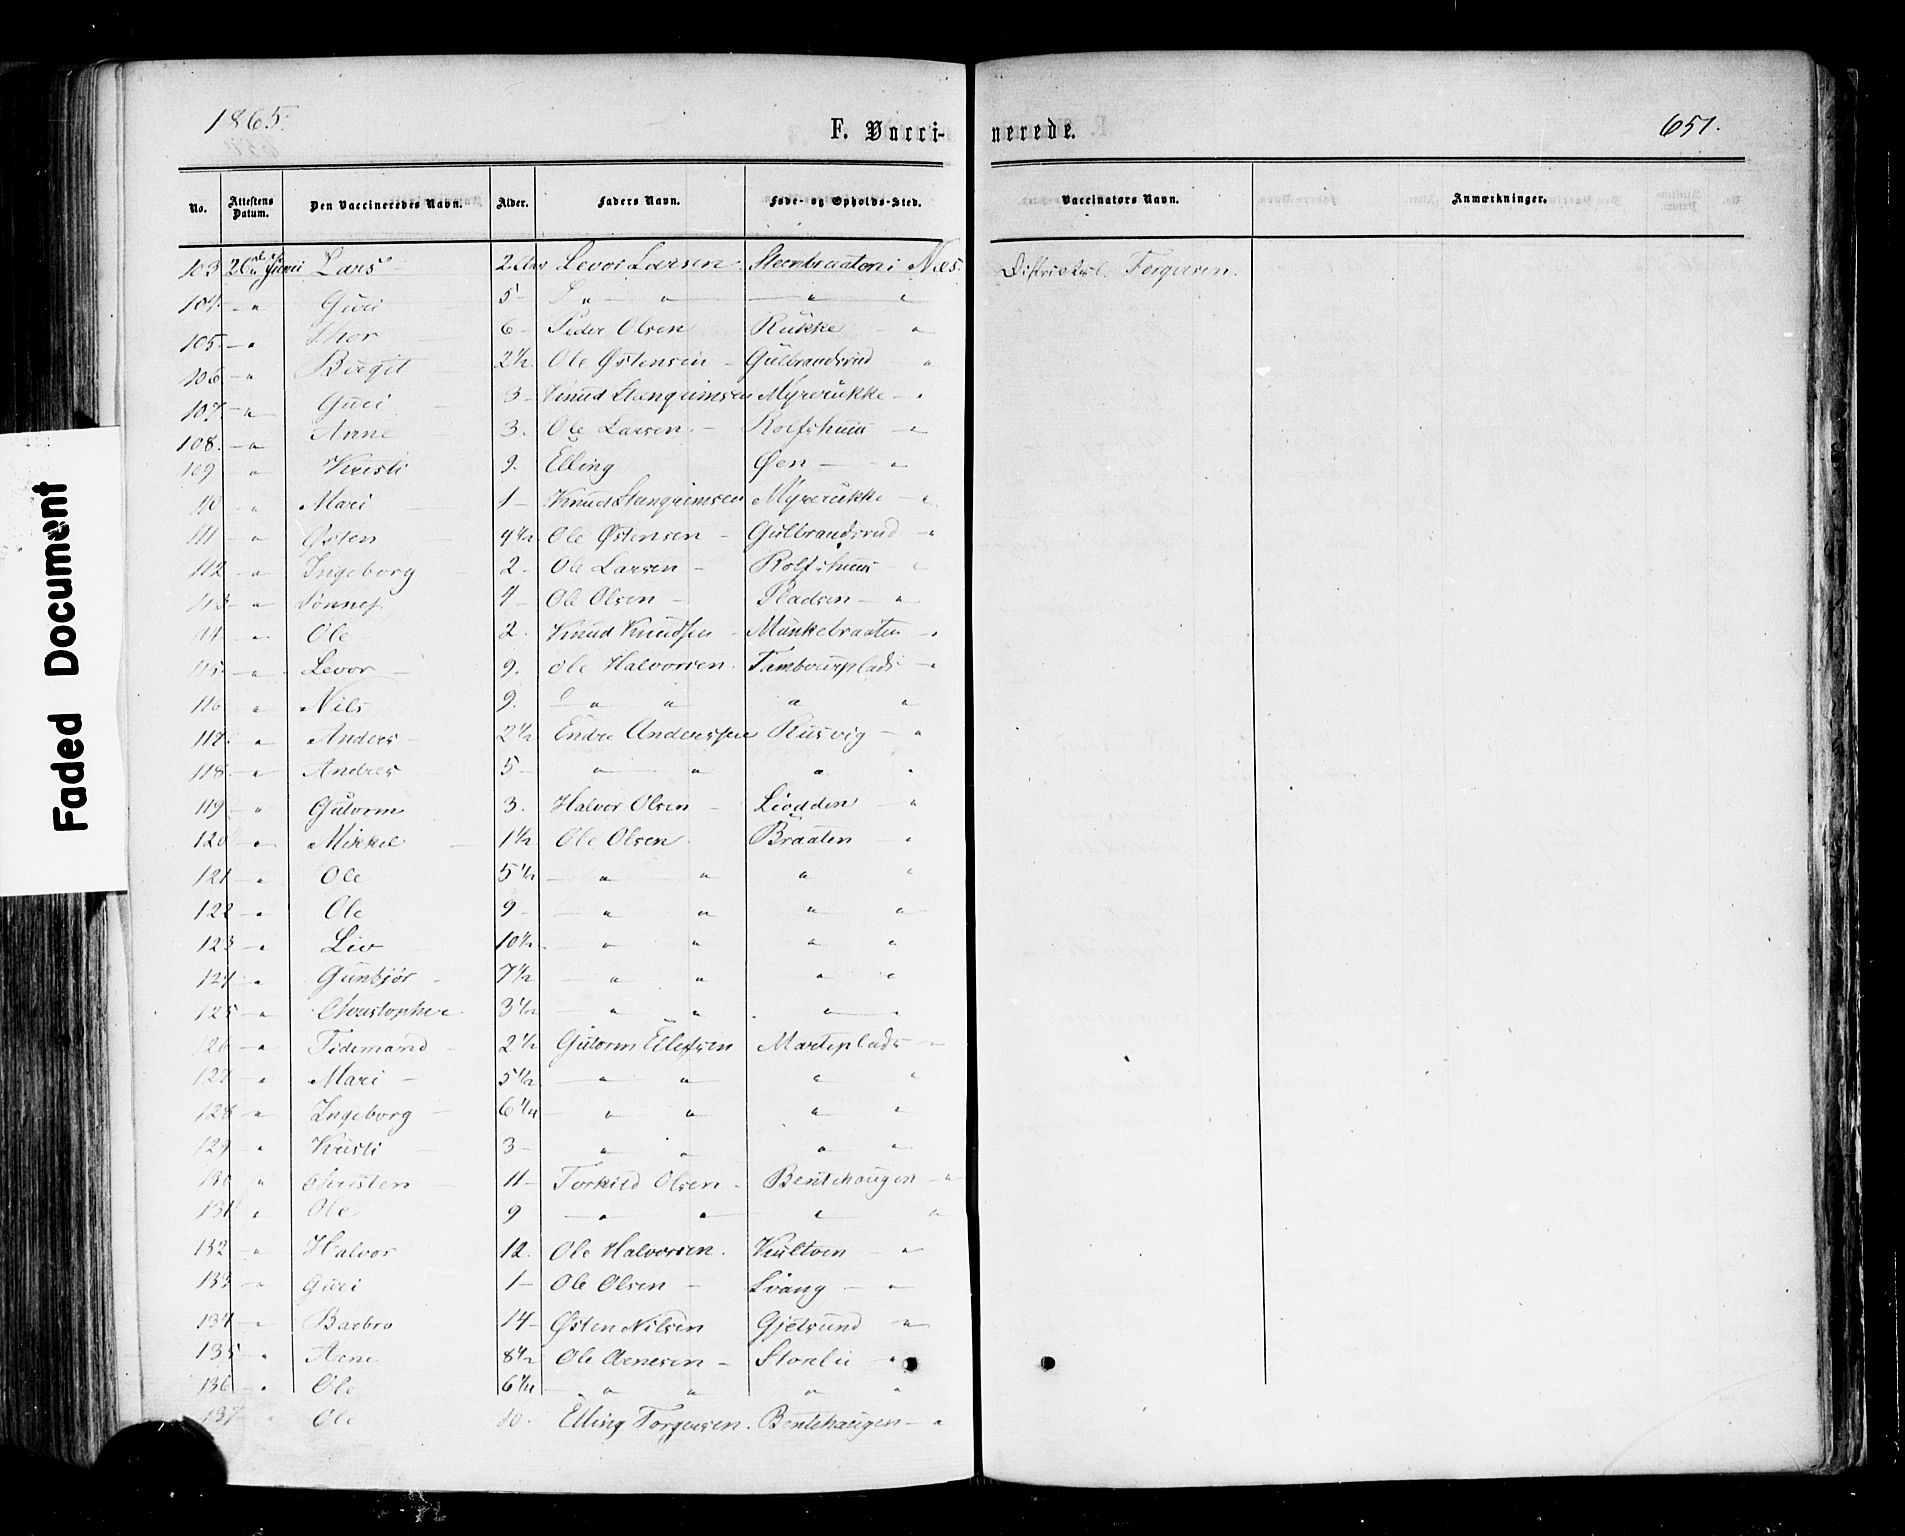 1865.
F. Vacci-
nerede.
651.
No. Attestens Datum. Den Vaccineredes Navn. Alder. Faders Navn. Føde- og Opholds-Sted. Vaccinators Navn. Anmærkninger.
103 26 Juni Lars 2 Aar Levor Larsen Steenbraaten i Næs Fergersen.
104 " Guri 5 - " " " "
105. - " Thor 6 - Peder Olsen Rukke "
106 - " Birgit 2 1/2. Ole Østensen - Gulbrandsrud "
107. - " Guri 3 - Knud Stengrimsen Myrerukke - "
108. - " Anne 3. Ole Larsen - Rolfshuus - "
109 " Kristi 9. Elling Øen - "
110 " Mari 1 - Knud Stengrimsen Myrerukke - "
111 - " Østen 4 1/2 Ole Østensen - Gulbrandsrud - "
112 - " Ingeborg 2 - Ole Larsen - Rolfshuus - "
113 - " Sønnef 4 - Ole Olsen - Pladsen - "
114 - " Ole 2. Knud Knudsen - Munkebraaten - "
115. - " Levor - 9. Ole Halvorsen. Tambourplads - "
116 " Nils 9. " " " "
117. - " Anders - 2 1/2 Endre Anderssen Rusvig - "
118 - " Andres 5 - " " " "
119 " Gutorm 3. Halvor Olsen - Liodden - "
120 - " Mikkel 1 1/2 Ole Olsen. Braaten "
121 - " Ole 5 1/2 - " " " "
122 - " Ole 9 - " " " "
123 - " Liv 10 1/2. - " " " "
124 - " Gunbjør - 7 1/2 - " " " "
125 - " Christopher. 3 1/2 - " " " "
126 - " Tidemand - 2 1/2 Gutorm Ellefsen Marteplads - "
127 - " Mari - 5 1/2 - " " " "
128 - " Ingeborg - 6 1/4 - " " " "
129 " Kristi 3 - " " " "
130 " Christen - 11 - Torkild Olsen - Bentehaugen - "
131 " Ole 9 - " " " "
132 " Halvor 12. Ole Halvorsen. Kultoen - "
133 - " Guri 1 - Ole Olsen - Svang - "
134 - " Barbro 14 - Østen Nilsen Gjetsund - "
135 - " Arne 8 1/2 Ole Arnesen - Storlie - "
136 " Ole 6 1/4 - " " " "
137 - " Ole 10. Elling Torgersen. Bentehaugen - "
Faded Document